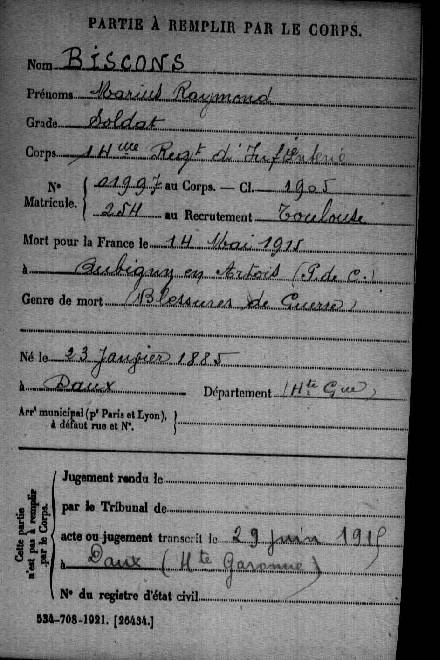 PARTIE À REMPLIR PAR LE CORPS.
Nom BISCONS
Prénoms Marius Raymond
Grade Soldat
Corps 14ème Regt d'Infanterie
N° Matricule. { 01997 au Corps. — Cl. 1905
254 au Recrutement Toulouse
Mort pour la France le 14 Mai 1915
à Aubigny en Artois (P. de C.)
Genre de mort (Blessures de Guerre)
Né le 23 Janvier 1885
à Daux Département (Hte Gne)
Arrt municipal (pr Paris et Lyon), à défaut rue et N°. }
Cette partie n'est pas à remplir par le Corps.
Jugement rendu le
par le Tribunal de
acte ou jugement transcrit le 29 juin 1915
à Daux (Hte Garonne)
N° du registre d'état civil
534-708-1921. [26434.]